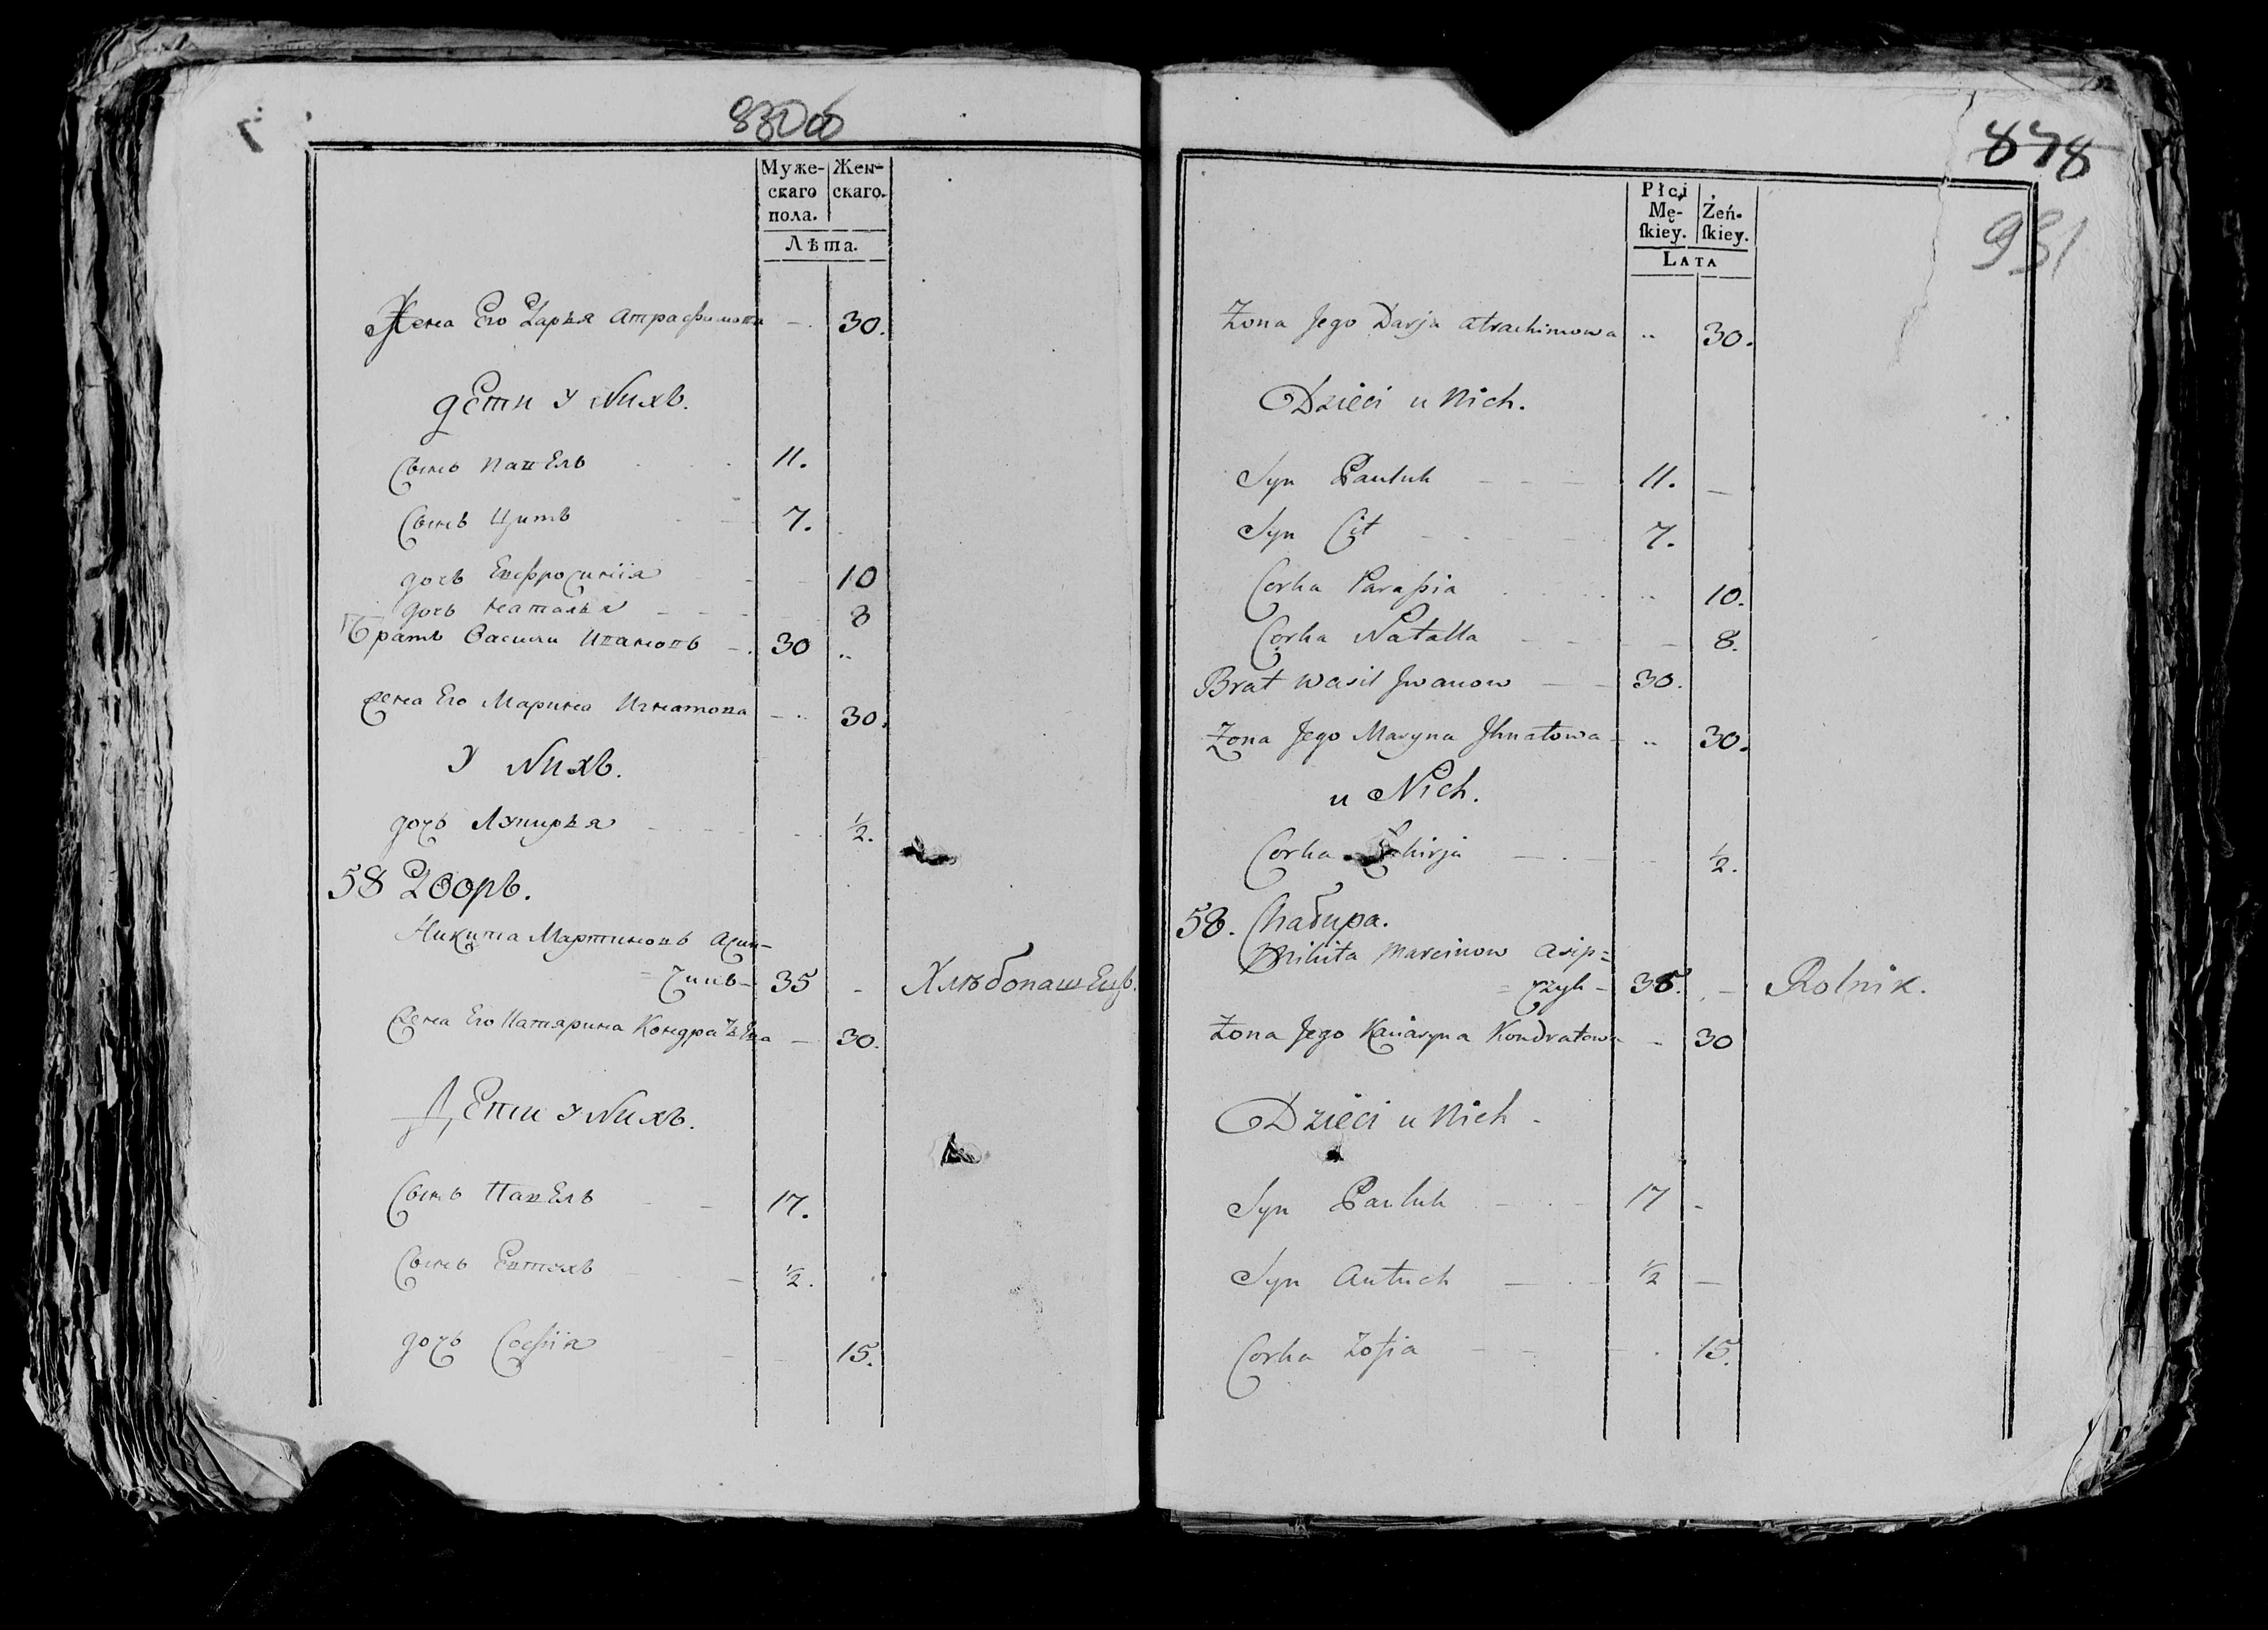 830об
Муже-
скаго
пола.
Жен-
скаго.
Лѣта.
Жена Его Дарья Атрафимова - 30.
дети у Nихъ.
Сынъ павелъ 11.
Сынъ Цитъ 7.
дочь Евфросинїя 10
дочь наталья 8
братъ Василии Ивановъ 30 ..
жена Его Марина Игнатова - .. 30.
У Nихъ.
дочь Лукирья 1/2.
58 Дворъ.
Никита Мартиновъ Асип-
=чикъ - 35 - Хлѣбопашецъ.
жена Его Катярина Кондратьева - 30.
Дети у Nихъ.
Сынъ Павелъ 17.
Сынъ Евтухъ 1/2.
дочь Софїя 15.
878
931
Płci
Mę-
ſkiey.
Żeń-
ſkiey.
Lata
Żona Jego Darja Atrachimowa .. 30.
Dzieci u Nich.
Syn Pauluk 11. -
Syn Cit 7.
Corka Parasia .. 10.
Corka Natalla - 8.
Brat Wasil Jwanow 30.
Żona Jego Maryna Jhnatowa - .. 30.
u Nich.
Corka 1/2.
58. Chatupa.
Mikita Marcinow Asip=
=czyk - 35. - Rolnik.
Żona Jego Kaciaryna Kondratowa - 30
Dzieci u Nich -
Syn Pauluk 17 -
Syn Autuch 1/2 -
Corka Zofia 15.